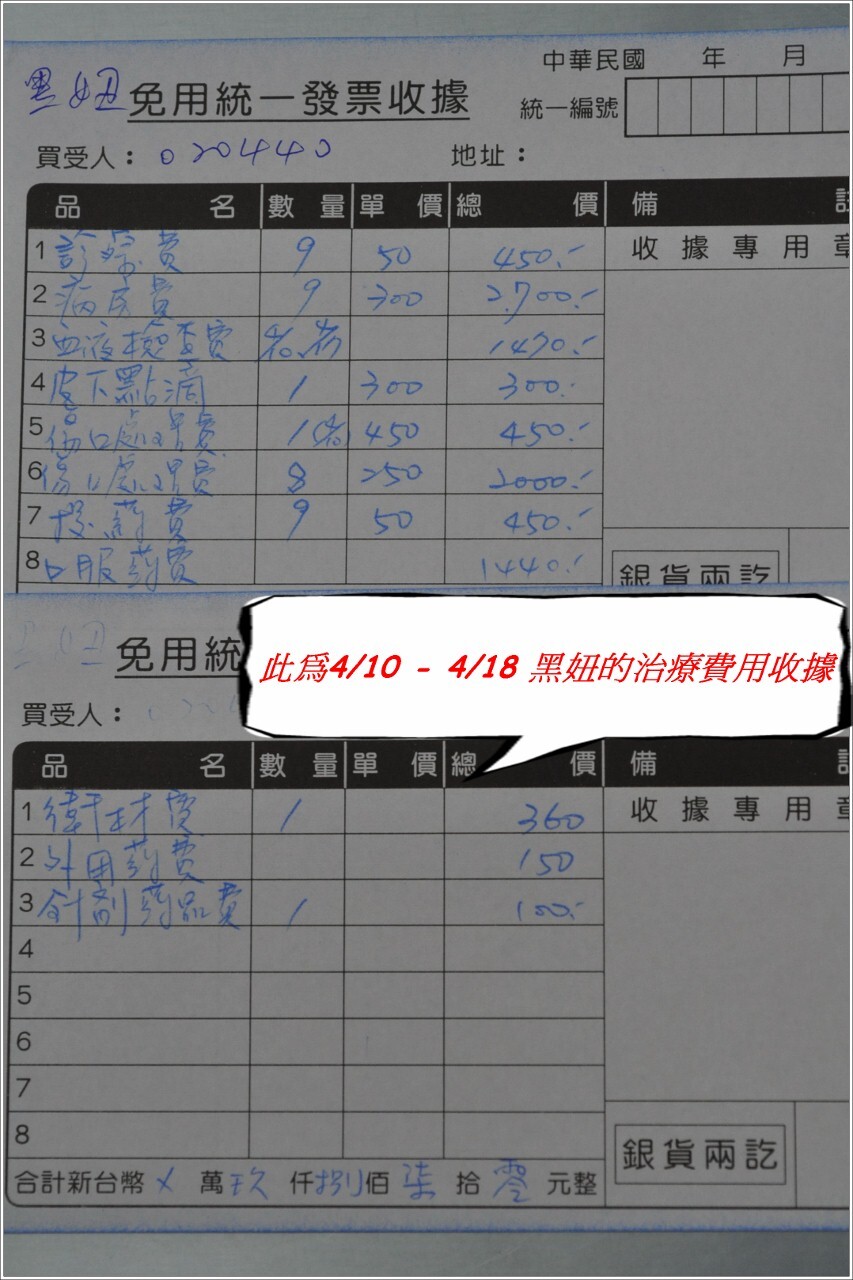 中華民國 年 月
黑妞 免用統一發票收據
統一編號
買受人：020440 地址：
品名 數量 單價 總價 備註
收據專用章
1 診療費 9 50 450.-
2 病房費 9 300 2,700.-
3 血液檢查費 1470.-
4 皮下點滴 1 300 300.-
5 傷口處理費 1 450 450.-
6 傷口處理費 8 250 2000.-
7 投葯費 9 50 450.-
8 口服葯費 1440.-
銀貨兩訖
黑妞 免用統
此為4/10 - 4/18 黑妞的治療費用收據
買受人：
品名 數量 單價 總價 備註
收據專用章
1 衛材費 1 360
2 外用葯費 150
3 針劑葯品費 1 100.-
4
5
6
7
8
銀貨兩訖
合計新台幣 x 萬 玖 仟 捌 佰 柒 拾 零 元整